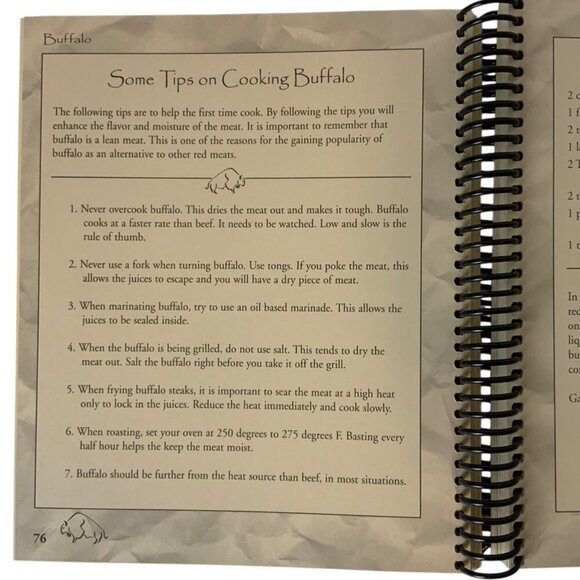 Buffalo
Some Tips on Cooking Buffalo
The following tips are to help the first time cook. By following the tips you will
enhance the flavor and moisture of the meat. It is important to remember that
buffalo is a lean meat. This is one of the reasons for the gaining popularity of
buffalo as an alternative to other red meats.
1. Never overcook buffalo. This dries the meat out and makes it tough. Buffalo
cooks at a faster rate than beef. It needs to be watched. Low and slow is the
rule of thumb.
2. Never use a fork when turning buffalo. Use tongs. If you poke the meat, this
allows the juices to escape and you will have a dry piece of meat.
3. When marinating buffalo, try to use an oil based marinade. This allows the
juices to be sealed inside.
4. When the buffalo is being grilled, do not use salt. This tends to dry the
meat out. Salt the buffalo right before you take it off the grill.
5. When frying buffalo steaks, it is important to sear the meat at a high heat
only to lock in the juices. Reduce the heat immediately and cook slowly.
6. When roasting, set your oven at 250 degrees to 275 degrees F. Basting every
half hour helps the keep the meat moist.
7. Buffalo should be further from the heat source than beef, in most situations.
76
2
1
2
1
2
2
1
1
In